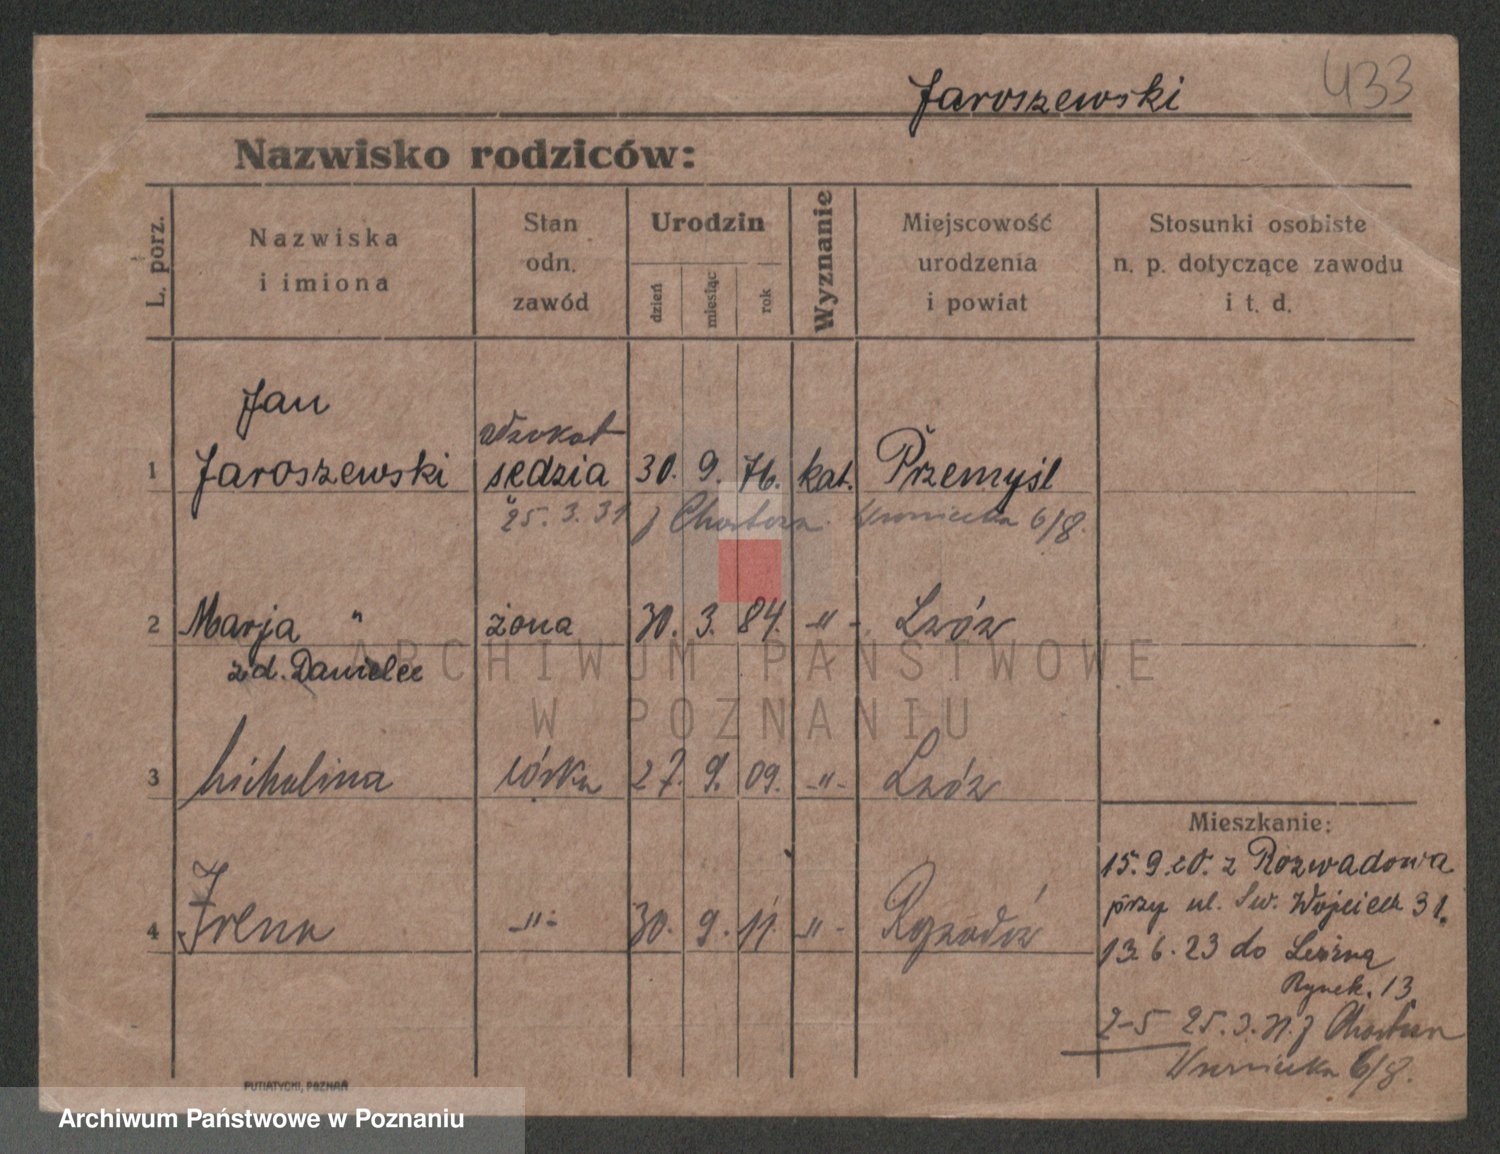 433
Jaroszewski
Nazwisko rodziców:
L. porz.
Nazwiska
i imiona
Stan
odn.
zawód
Urodzin
dzień
miesiąc
rok
Wyznanie
Miejscowość
urodzenia
i powiat
Stosunki osobiste
n. p. dotyczące zawodu
i t. d.
Jan
adwokat
1 Jaroszewski sędzia 30. 9. 76. kat. Przemyśl
25. 3. 31 6/8.
2 Marja " żona 30. 3. 84. -"-
z d. Danielec
3 Michalina córka 27. 9. 09. -"-
4 Irena -"- 30. 9. 11. -"-
Mieszkanie:
15. 9. 20. z Rozwadowa
przy ul. Św. Wojciech 31.
13. 6. 23 do
Rynek. 13
2-5 25. 3. 31.
6/8.
ARCHIWUM PAŃSTWOWE
W POZNANIU
PUTIATYCKI, POZNAŃ
Archiwum Państwowe w Poznaniu